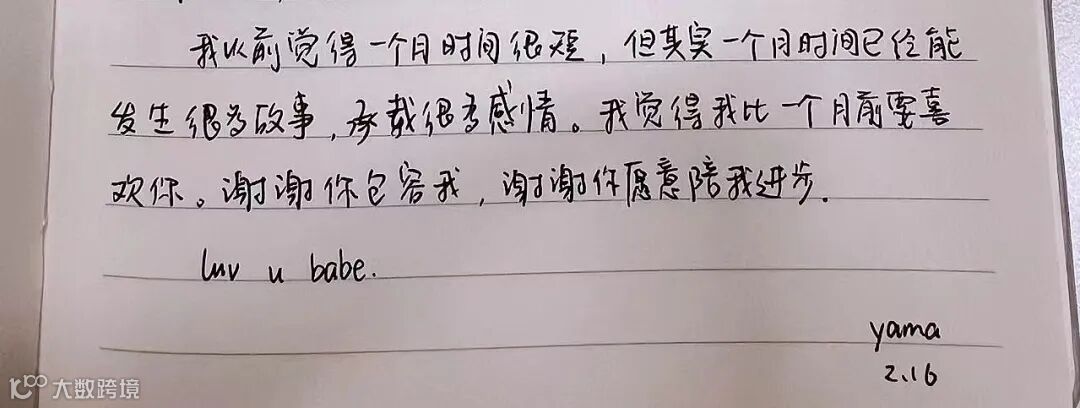 我以前觉得一个月时间很短，但其实一个月时间已经能
发生很多故事，承载很多感情。我觉得我比一个月前要喜
欢你。谢谢你包容我，谢谢你愿意陪我进步.
luv u babe.
yama
2.16
大数跨境